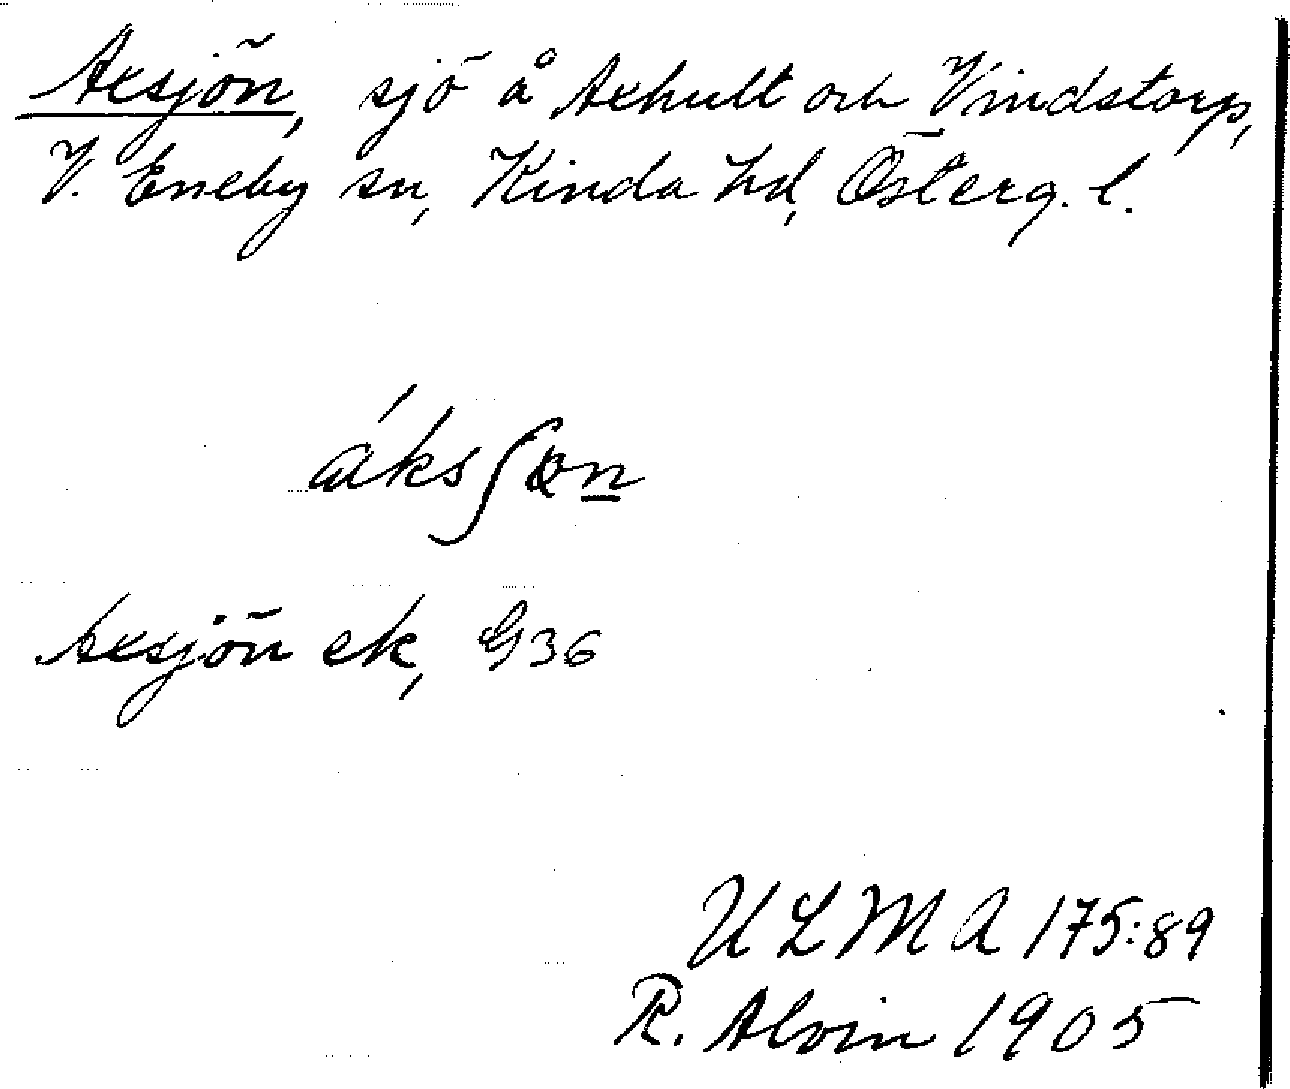 Axsjön, sjö å Axhult och Vindstorp,
V. Eneby sn, Kinda hd, Österg. l.
Axsjön ek, G36
ULMA 175:89
R. Alvin 1905